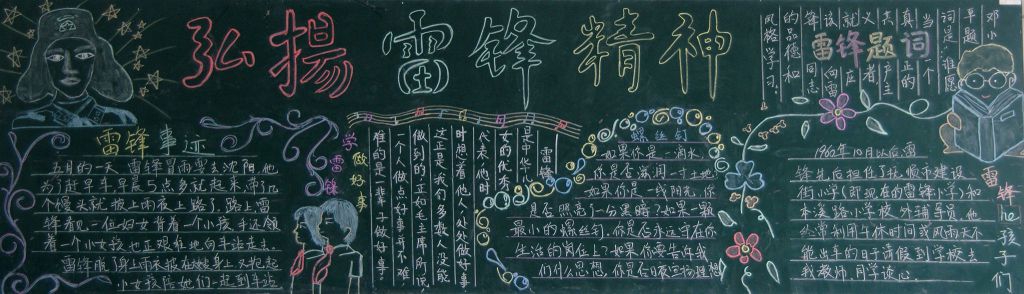 弘揚雷锋精神
雷锋事迹
五月的一天 雷锋冒雨要去沈阳,他
为了赶早车早晨5点多就起来带了几
个馒头就披上雨衣上路了,路上雷
锋看见一位妇女背着一个小孩手还领
着一个小女孩也正艰难地向车站走去.
雷锋脱了身上雨衣披在她身上又抱起
小女孩陪她们一起到车站
学雷锋
做好事
雷锋
是中华儿
女的优秀
代表,他时
时想着他人处处做好
过正是我们多数人没能
做到的.正如毛主席所说
一个人做点好事并不难,
难的是一辈子做好事.
螺丝钉
如果你是一滴水,
你是否滋润一寸土地
如果你是一线阳光,你
是否照亮了一分黑暗?如果一颗
最小的螺丝钉,你是否永远守在你
生活的岗位上?如果你要告诉我
们什么思想,你是否日夜宣扬
雷锋题词
邓小
早题
词是:谁愿
当一个
真正的
共产主
义者
就应
该向雷
锋同志
的品德和
风格学习.
1960年10月以后,雷
锋先后担任了抚顺市建设
街小学(即现在的雷锋小学)和
本溪路小学校外辅导员,他
经常利用午休时间或风雨天不
能出车的日子请假到学校去
找教师,同学谈心
雷锋he孩子们